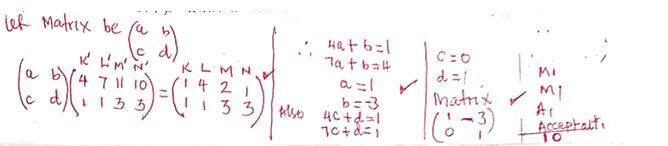 let Matrix be (a b
c d)
(a b
c d) (K' L' M' N'
4 7 11 10
1 1 3 3) = (K L M N
1 4 2 1
1 1 3 3)
∴ 4a+b=1
7a+b=4
a=1
b=-3
Also 4c+d=1
7c+d=1
c=0
d=1
Matrix
(1 -3
0 1)
M1
M1
A1
Accept alt.
10